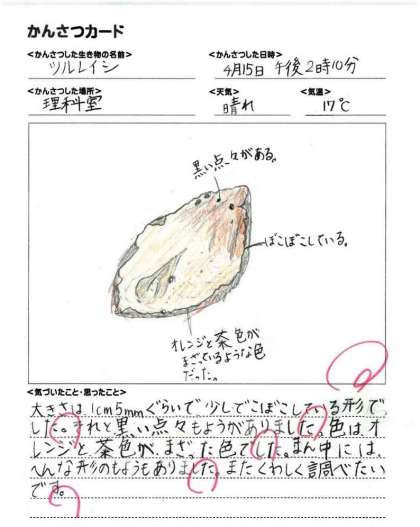 かんさつカード
<かんさつした生き物の名前>
ツルレイシ
<かんさつした日時>
4月15日 午後2時10分
<かんさつした場所>
理科室
<天気>
晴れ
<気温>
17℃
黒い点々がある。
ぼこぼこしている。
オレンジと茶色が
まざっているような色
だった。
<気づいたこと・思ったこと>
大きさは1cm5mmぐらいで、少しでこぼこしている形で
した。それと黒い点々もようがありました。色は、オ
レンジと茶色が、まざった色でした。まん中には、
へんな形のもようもありました。またくわしく調べたい
です。